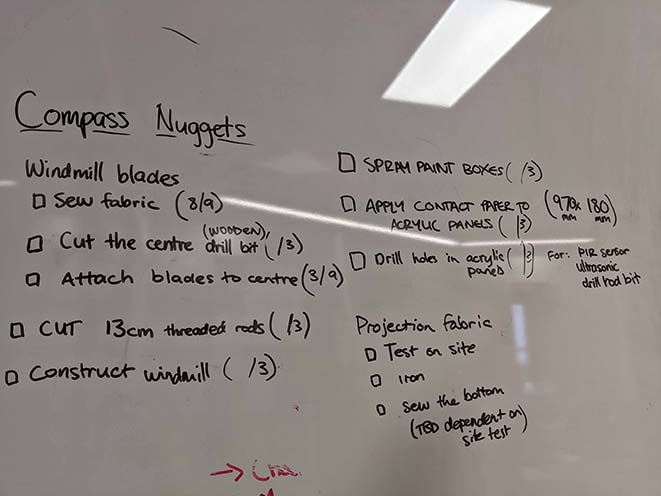 Compass Nuggets
Windmill blades
Sew fabric (8/9)
Cut the centre (WOODEN) drill bit (/3)
Attach blades to centre (3/9)
CUT 13cm threaded rods (/3)
Construct windmill ( /3)
SPRAY PAINT BOXES ( /3)
APPLY CONTACT PAPER TO (970 x 180)
mm mm
ACRYLIC PANELS ( /3)
Drill holes in acrylic ( /3) For: PIR sensor
panels ultrasonic
drill hod bit
Projection fabric
Test on site
iron
Sew the bottom
(TBD dependent on
site test)
→